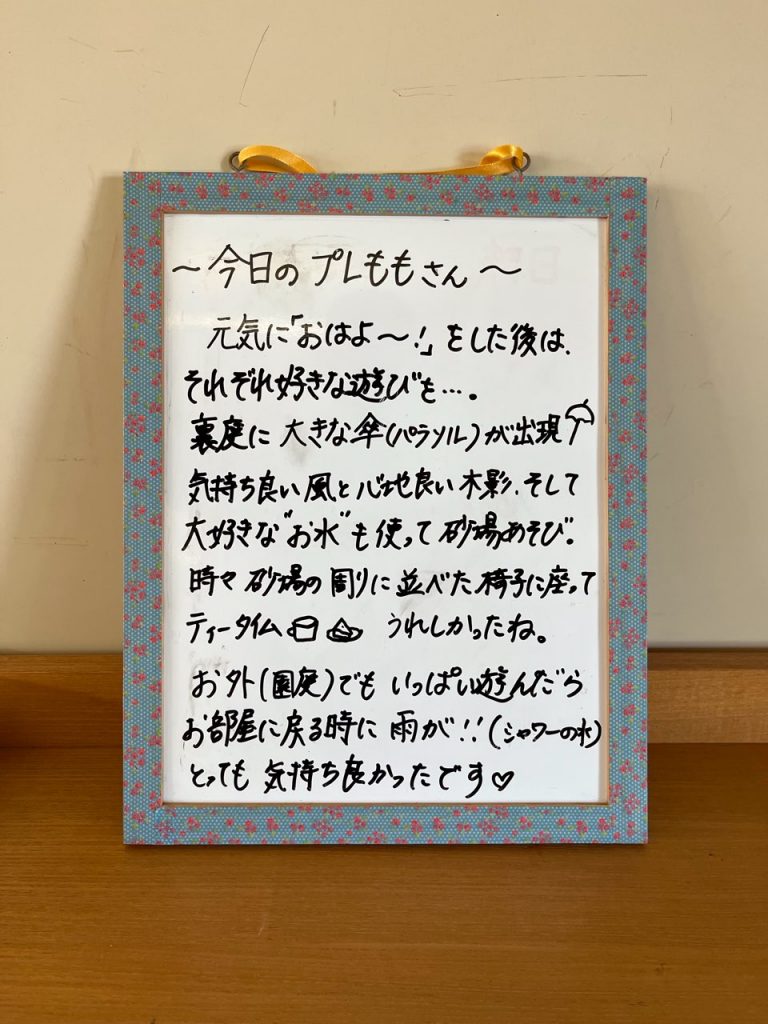 〜今日のプレももさん〜
元気に「おはよ〜!」をした後は、
それぞれ好きな遊びを…。
裏庭に大きな傘(パラソル)が出現
気持ち良い風と心地良い木影、そして
大好きな"お水"も使って砂場あそび。
時々砂場の周りに並べた椅子に座って
ティータイム うれしかったね。
お外(園庭)でもいっぱい遊んだら
お部屋に戻る時に雨が!!(シャワーの水)
とっても気持ち良かったです♡